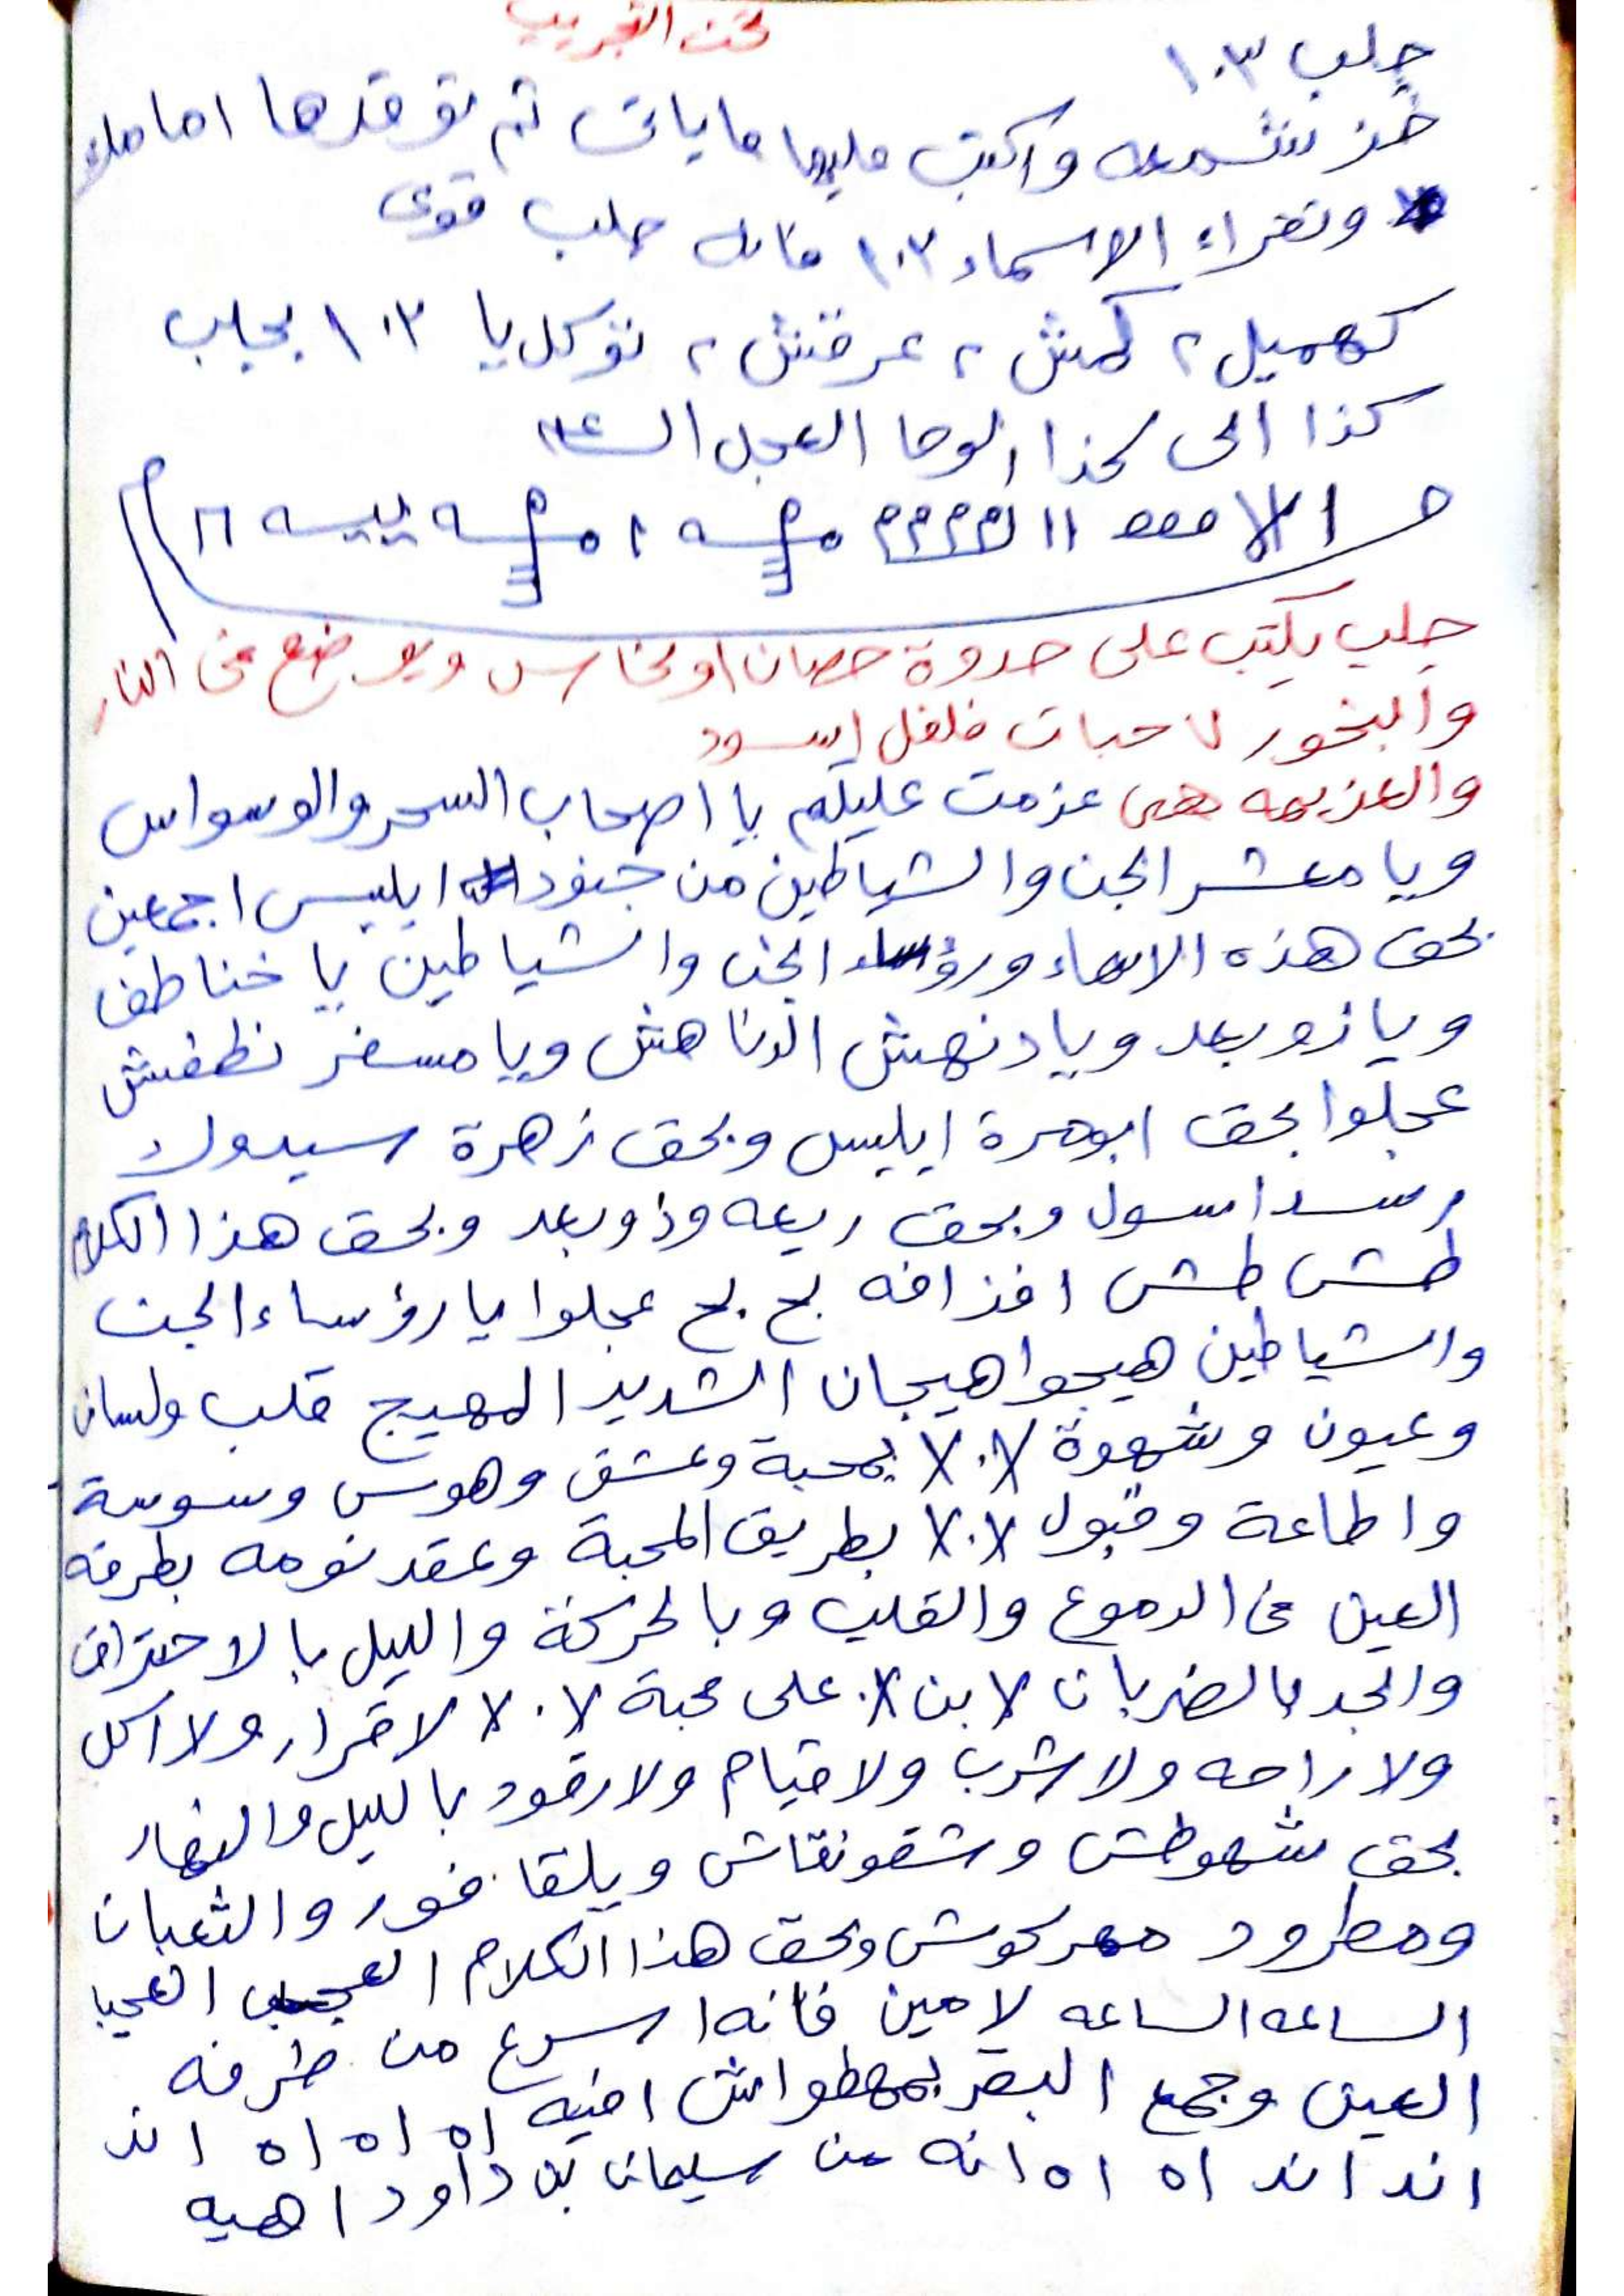 تحت التجريب
جلب ١٠٣
خذ شمعه واكتب عليها ماياتى ثم توقدها امامك
وتقراء الاسماء ١٠٣ فانه جلب قوى
كهميل ٢ كمش ٢ عرقش ٢ توكل يا ١٠٣ بجلب
كذا الى كذا الوحا العجل الساعه
جلب يكتب على حدوة حصان او نحاس ويوضع فى النار
والبخور ٧ حبات فلفل اسود
والعزيمه هى عزمت عليكم يا اصحاب السحر والوسواس
ويا معشر الجن والشياطين من جنود ابليس اجمعين
بحق هذه الاسماء ورؤساء الجن والشياطين يا خناطف
ويا زوبعد ويا دنهش الدناهش ويا مسفر نطفش
عجلوا بحق ابومرة ابليس وبحق زهرة سيدوك
رسدا سول وبحق ريعه وذوبعد وبحق هذا الكلام
طش طش افذافه بح بح عجلوا يا رؤساء الجن
والشياطين هيجوا هيجان الشديد المهيج قلب ولسان
وعيون وشهوة ١٠٧ بمحبة وعشق وهوس وسوسة
واطاعة وقبول ١٠٧ بطريق المحبة وعقد نومه بطرفه
العين فى الدموع والقلب وبالحركة والليل بالاحتراق
والجد بالضربات على محبة لا قرار ولا اكل
ولا راحه ولا شرب ولا قيام ولا رقود بالليل والنهار
بحق شهوطش وشقونقاش ويلقا فور والثعبان
ومطرود مهركوش وبحق هذا الكلام العجيب
الساعه الساعه لامين فانه اسرع من طرفه
العين وجمع البصر بمهطواش افيه اه اه اه اند
اند اند اه اه انه من سيمان بن داود اهيه